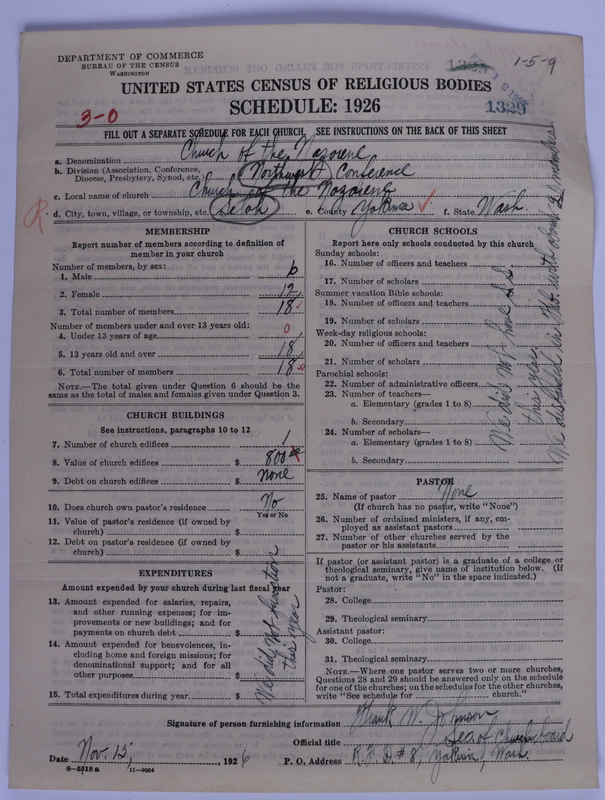 DEPARTMENT OF COMMERCE
BUREAU OF THE CENSUS
WASHINGTON
1-5-9
UNITED STATES CENSUS OF RELIGIOUS BODIES
SCHEDULE: 1926
1329
3-0
FILL OUT A SEPARATE SCHEDULE FOR EACH CHURCH. SEE INSTRUCTIONS ON THE BACK OF THIS SHEET
a. Denomination Church of the Nazorene
b. Division (Association, Conference, Diocese, Presbytery, Synod, etc.) Northwest Conference
c. Local name of church Church of the Nazorene
R d. City, town, village, or township, etc. Selah e. County Yakima f. State Wash.
MEMBERSHIP
Report number of members according to definition of
member in your church
Number of members, by sex:
1. Male 6
2. Female 12
3. Total number of members 18
Number of members under and over 13 years old:
4. Under 13 years of age 0
5. 13 years old and over 18
6. Total number of members 18
NOTE.—The total given under Question 6 should be
same as the total of males and females given under Question 3.
CHURCH BUILDINGS
See instructions, paragraphs 10 to 12
7. Number of church edifices 1
8. Value of church edifices $ 800
9. Debt on church edifices $ None
10. Does church own pastor's residence No
Yes or No
11. Value of pastor's residence (if owned by
church) $
12. Debt on pastor's residence (if owned by
church) $
EXPENDITURES
Amount expended by your church during last fiscal year
13. Amount expended for salaries, repairs,
and other running expenses; for im-
provements or new buildings; and for
payments on church debt $
14. Amount expended for benevolences, in-
cluding home and foreign missions; for
denominational support; and for all
other purposes $
15. Total expenditures during year $
We did not function
this year
CHURCH SCHOOLS
Report here only schools conducted by this church
Sunday schools:
16. Number of officers and teachers
17. Number of scholars
Summer vacation Bible schools:
18. Number of officers and teachers
19. Number of scholars
Week-day religious schools:
20. Number of officers and teachers
21. Number of scholars
Parochial schools:
22. Number of administrative officers
23. Number of teachers—
a. Elementary (grades 1 to 8)
b. Secondary
24. Number of scholars—
a. Elementary (grades 1 to 8)
b. Secondary
We did not have S.S.
this year
We disbanded in with about members
PASTOR
25. Name of pastor None
(If church has no pastor, write "None")
26. Number of ordained ministers, if any, em-
ployed as assistant pastors
27. Number of other churches served by the
pastor or his assistants
If pastor (or assistant pastor) is a graduate of a college or
theological seminary, give name of institution below. (If
not a graduate, write "No" in the space indicated.)
Pastor:
28. College
29. Theological seminary
Assistant pastor:
30. College
31. Theological seminary
NOTE.—Where one pastor serves two or more churches,
Questions 28 and 29 should be answered only on the schedule
for one of the churches; on the schedules for the other churches,
write "See schedule for church."
Signature of person furnishing information Frank W. Johnson
Official title Sec of Church board
Date Nov. 15, 1926 P. O. Address R.F.D.#8, Yakima, Wash.
8-5518a 11-9054